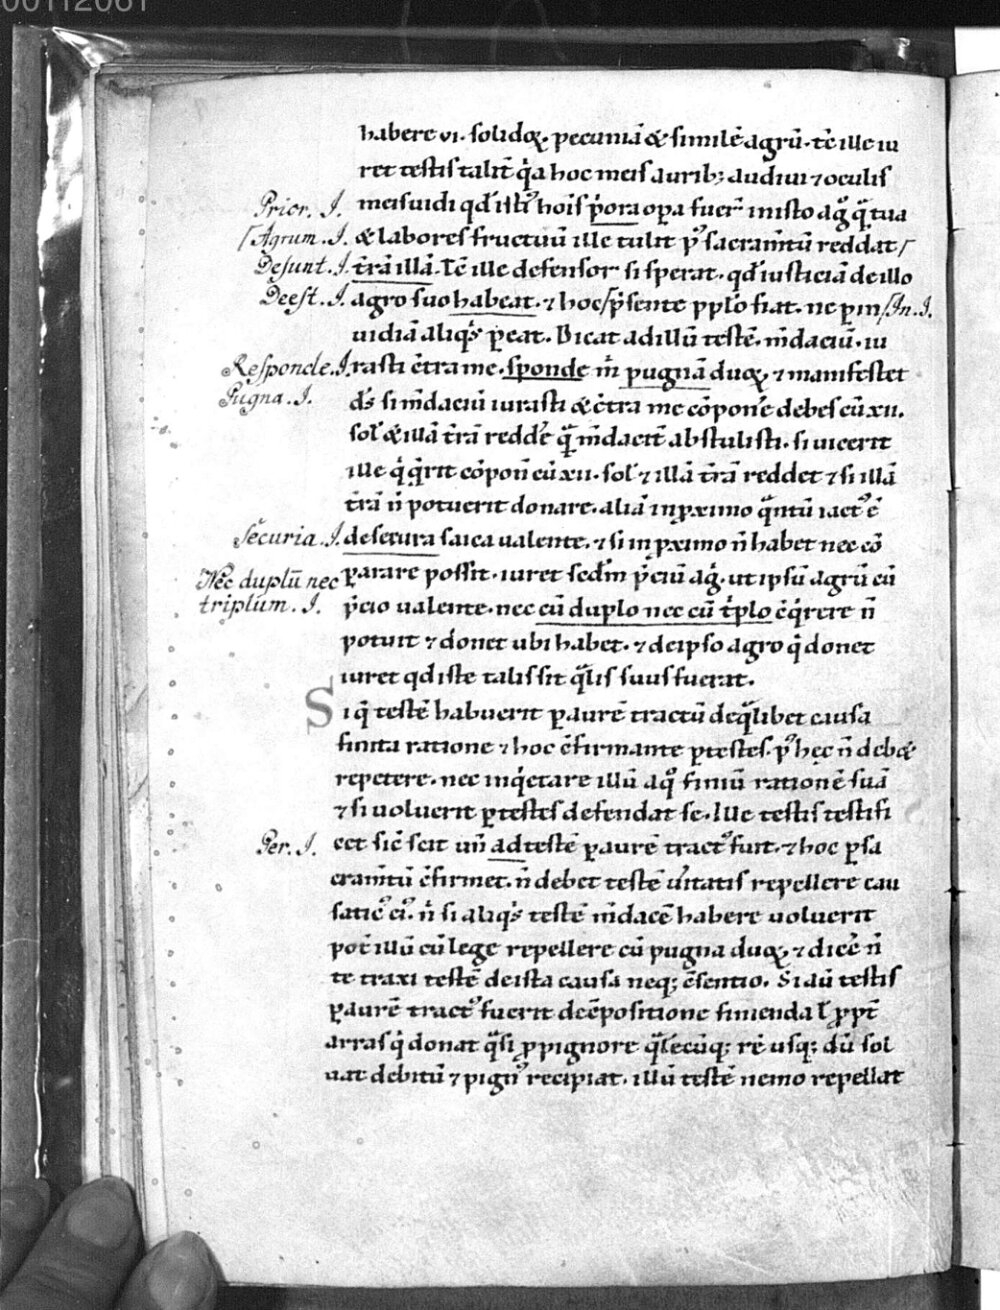 00112061
habere vi. solidoꝝ. pecuniā & similē agrū. tc̄ ille iu
ret testis talit̄ q̇a hoc meis aurib; audiui ⁊ oculis
Prior. I. meis uidi qd̄ isti᾽ hoīs p̄ora oꝑa fuer̄ in isto ag̊ q̄ tua
/Agrum. I. & labores fructuū ille tulit p᾽ sacram̄tū reddat/
Desunt. I. t̄rā illā. Tc̄ ille defensor si sperat. qd̄ iusticiā de illo
Deest. I. agro suo habeat. ⁊ hoc/p̄sente pplo fiat. ne ꝑ in/In. I.
uidiā aliqṡ ꝑeat. Dicat ad illū testē. m̄daciū. iu
Responde. I. rasti c̄tra me. sponde m̄ pugnā duoꝝ ⁊ manifestet
Pugna. I. ds̄ si m̄daciū iurasti & c̄tra me cōpon̄e debes cū xii.
sol̄ & illā t̄rā redd̄e q̄̄ m̄dacit̄ abstulisti. si uicerit
ille q̇ q̇rit cōpon̄ cū xii. sol̄ ⁊ illā t̄rā reddet ⁊ si illā
t̄rā n̄ potuerit donare. aliā in ꝓximo q̄ntū iact᾽ ē
Sēcuria. I. de secura saica ualente. ⁊ si in ꝓximo n̄ habet nec cō
parare possit. iuret sed̄m p̄ciū ag̊. ut ipsū agrū cū
Nec duplū nec
triplum. I. p̄cio ualente. nec cū duplo nec cū t̄plo c̄q̇rere n̄
potuit ⁊ donet ubi habet. ⁊ de ipso agro q̇ donet
iuret qd̄ iste talis sit q̄lis suus fuerat.
Si q̇ testē habuerit ꝑ aurē tractū de q̄libet causa
finita ratione ⁊ hoc c̄firmante ꝑ testes. p᾽ hęc n̄ deb&
repetere. nec inq̇etare illū a q̊ finiū rationē suā
⁊ si uoluerit ꝑ testes defendat se. Ille testis testifi
Per. I. cet sic̄ scit un̄ ad testē ꝑ aurē tract᾽ fuit. ⁊ hoc ꝑ sa
cram̄tū c̄firmet. n̄ debet testē u̇itatis repellere cau
satic᾽ ei᾽. n̄ si aliqṡ testē m̄dacē habere uoluerit
pot̄ illū cū lege repellere cū pugna duoꝝ ⁊ dic̄e n̄
te traxi testē de ista causa neq; c̄sentio. Si aū testis
ꝑ aurē tract᾽ fuerit de cēpositione finienda ł ꝓpt̄
arras q̇ donat q̄si ꝓ pignore q̄lēcūq; rē usq; dū sol
uat debitū ⁊ pign᾽ recipiat. illū testē nemo repellat